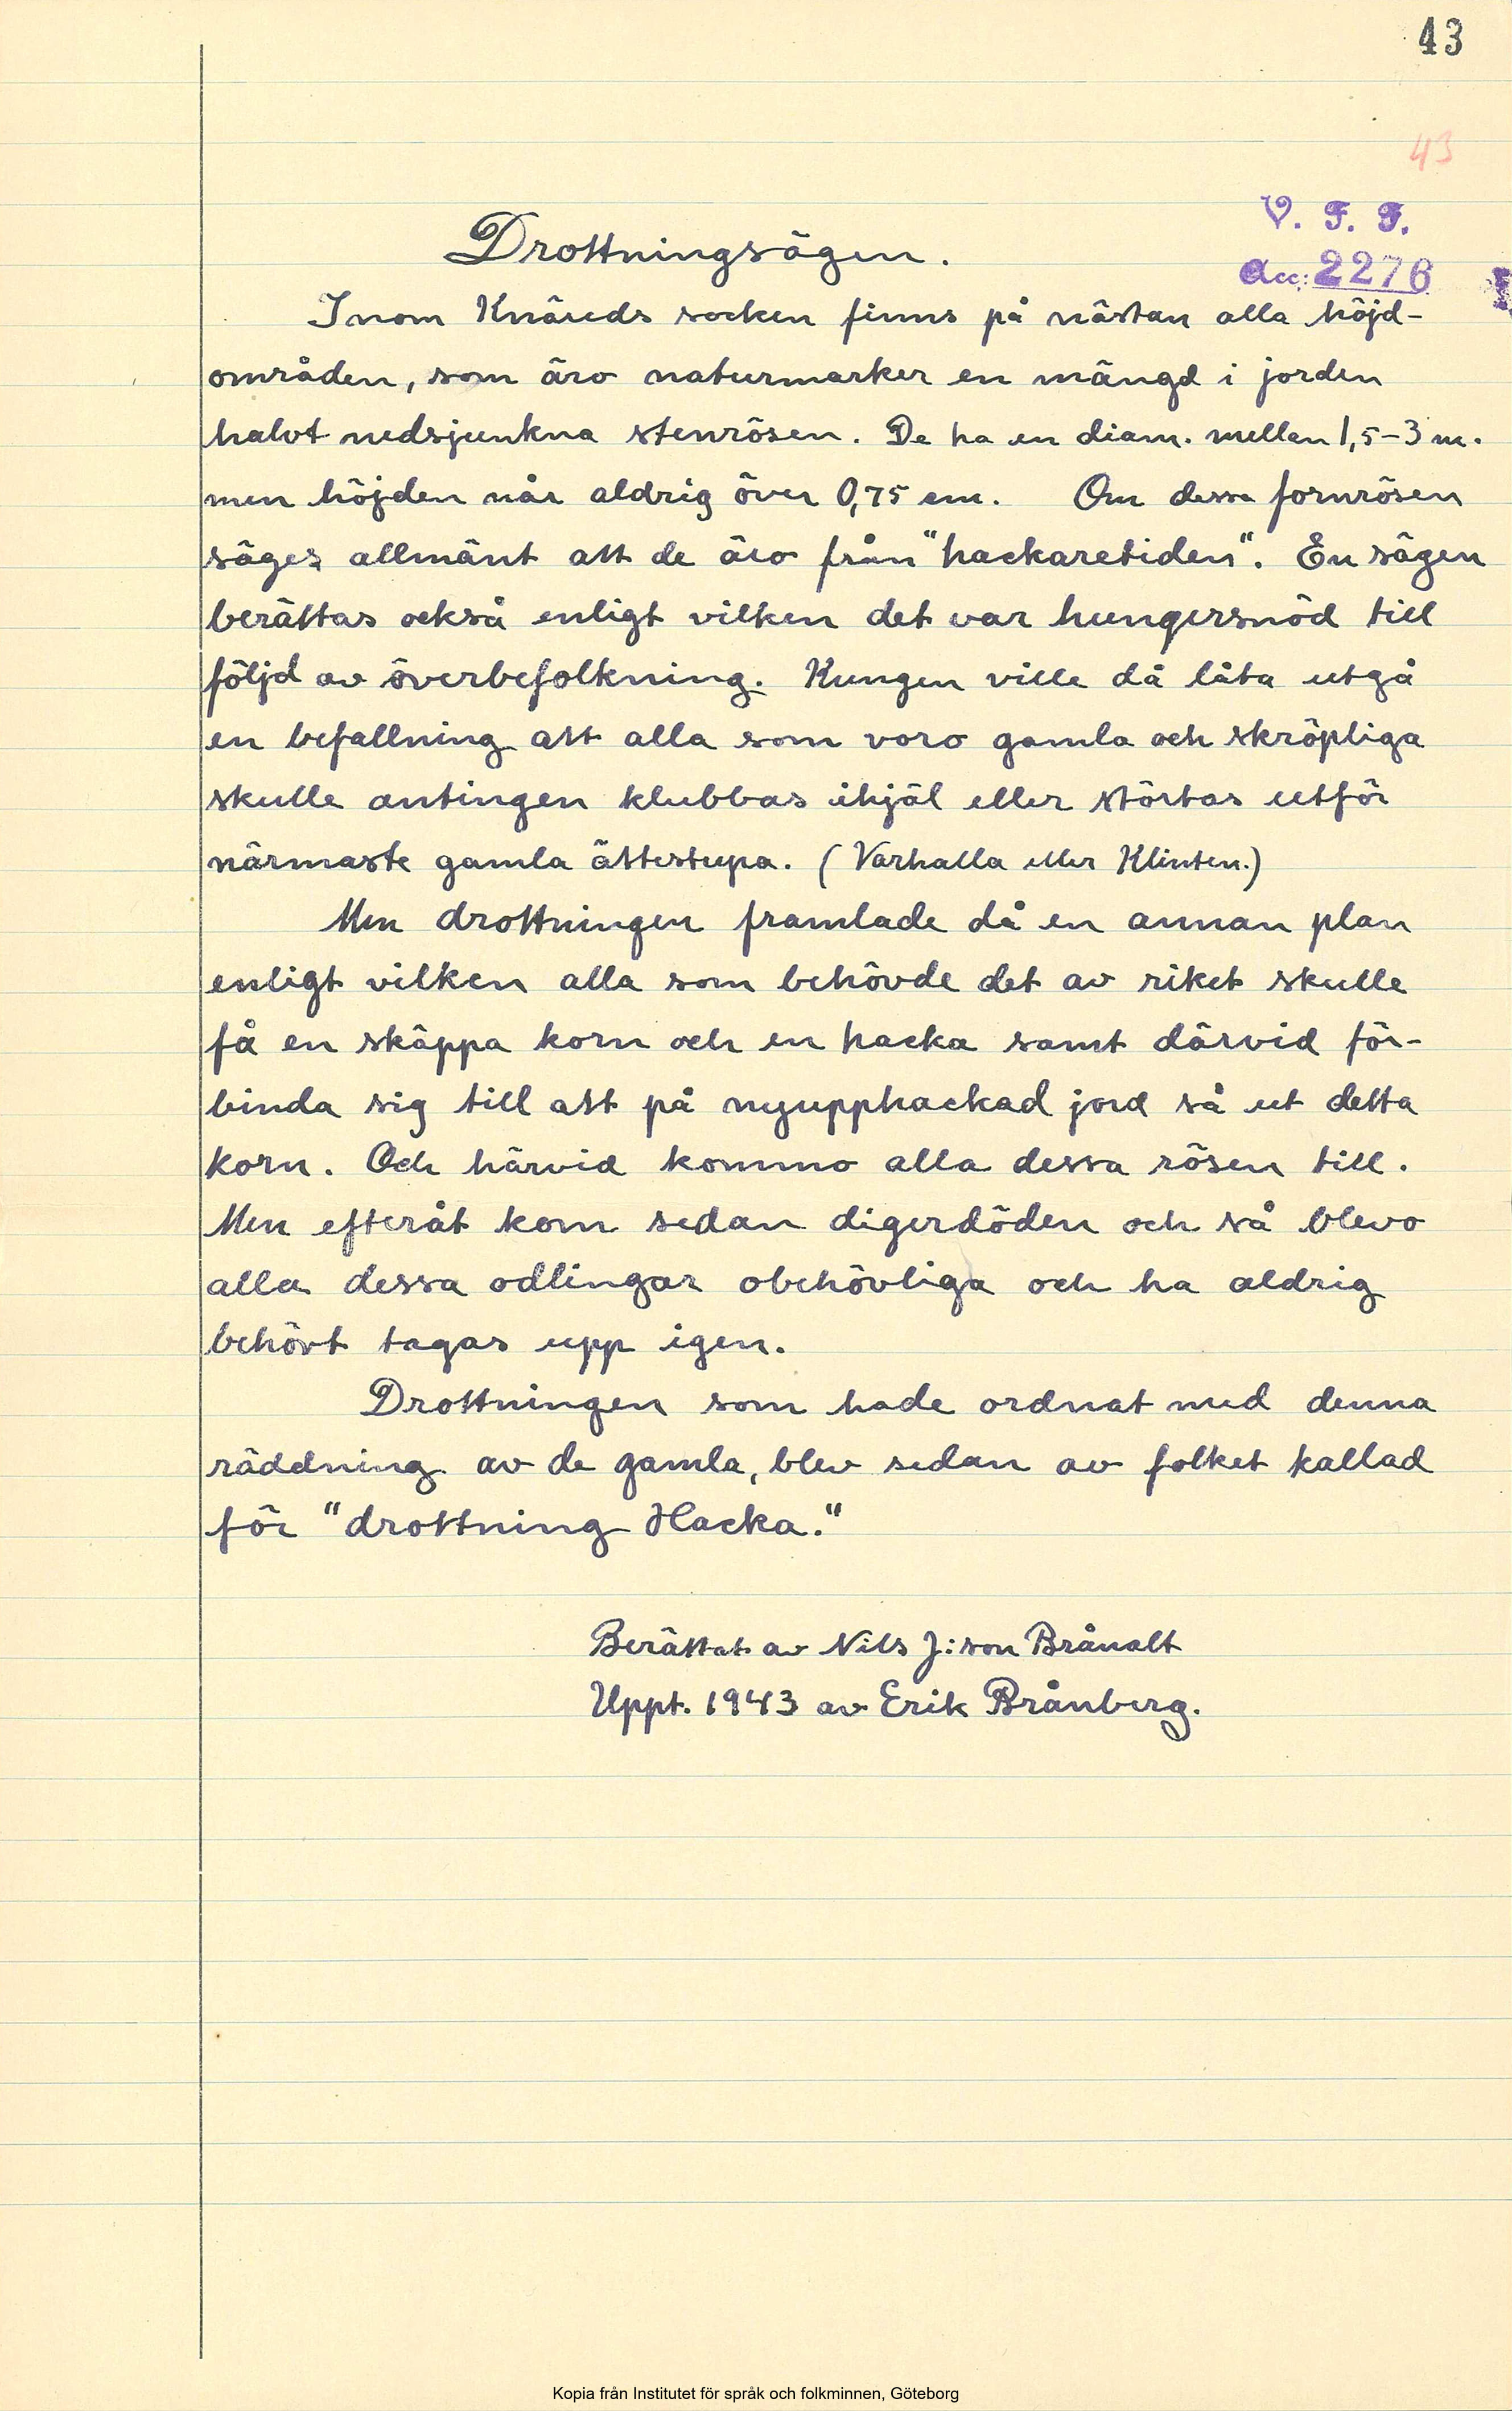 43
43
V. F. F.
Acc: 2276
Drottningsägen.
Inom Knäreds socken finns på nästan alla höjd-
områden, som äro naturmarker en mängd i jorden
halvt nedsjunkna stenrösen. De ha en diam. mellan 1,5-3 m.
men höjden når aldrig över 0,75 cm. Om dessa fornrösen
säges allmänt att de äro från "hackaretiden". En sägen
berättas också enligt vilken det var hungersnöd till
följd av överbefolkning. Kungen ville då låta utgå
en befallning att alla som voro gamla och skröpliga
skulle antingen klubbas ihjäl eller störtas utför
närmaste gamla ättestupa. (Varhalla eller Klinten.)
Men drottningen framlade då en annan plan
enligt vilken alla som behövde det av riket skulle
få en skäppa korn och en hacka samt därvid för-
binda sig till att på nyupphackad jord så ut detta
korn. Och härvid kommo alla dessa rösen till.
Men efteråt kom sedan digerdöden och så blevo
alla dessa odlingar obehövliga och ha aldrig
behövt tagas upp igen.
Drottningen som hade ordnat med denna
räddning av de gamla, blev sedan av folket kallad
för "drottning Hacka."
Berättat av Nils J:son Brånalt
Uppt. 1943 av Erik Brånberg.
Kopia från Institutet för språk och folkminnen, Göteborg